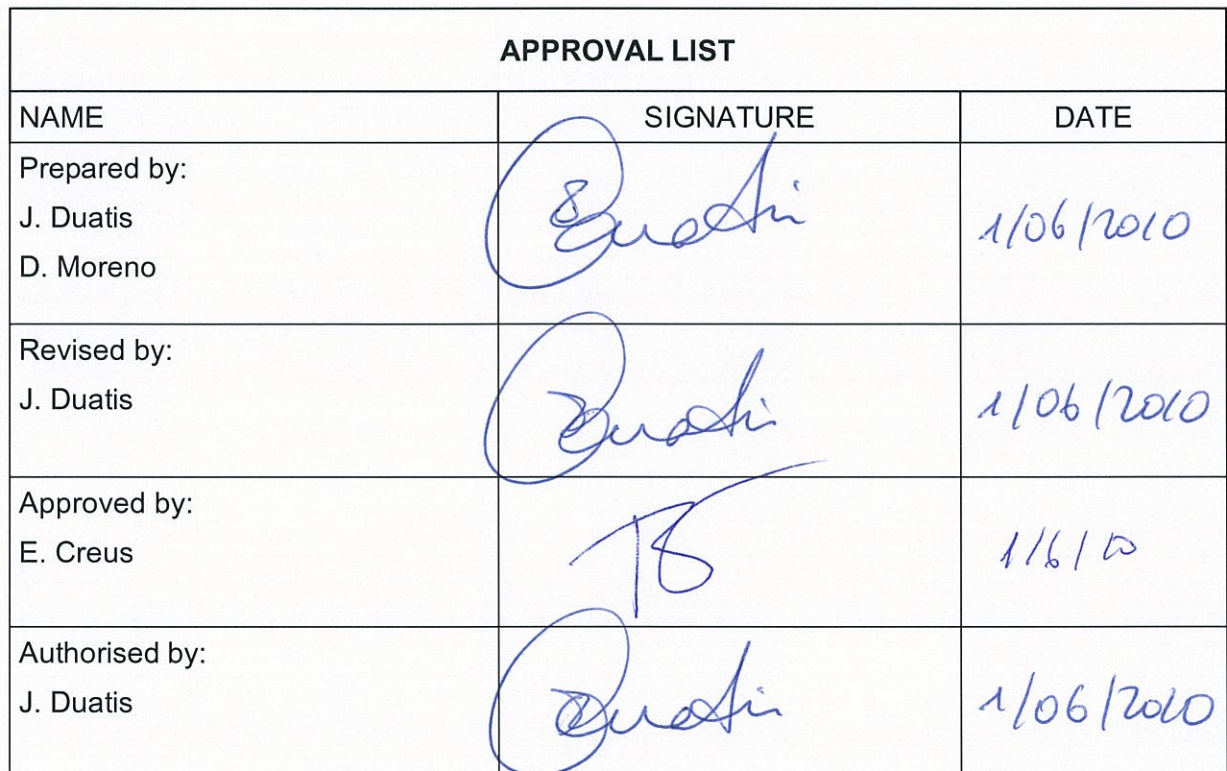 APPROVAL LIST
NAME SIGNATURE DATE
Prepared by:
J. Duatis
D. Moreno
Duatis
1/06/2010
Revised by:
J. Duatis
Duatis
1/06/2010
Approved by:
E. Creus
1/6/10
Authorised by:
J. Duatis
Duatis
1/06/2010